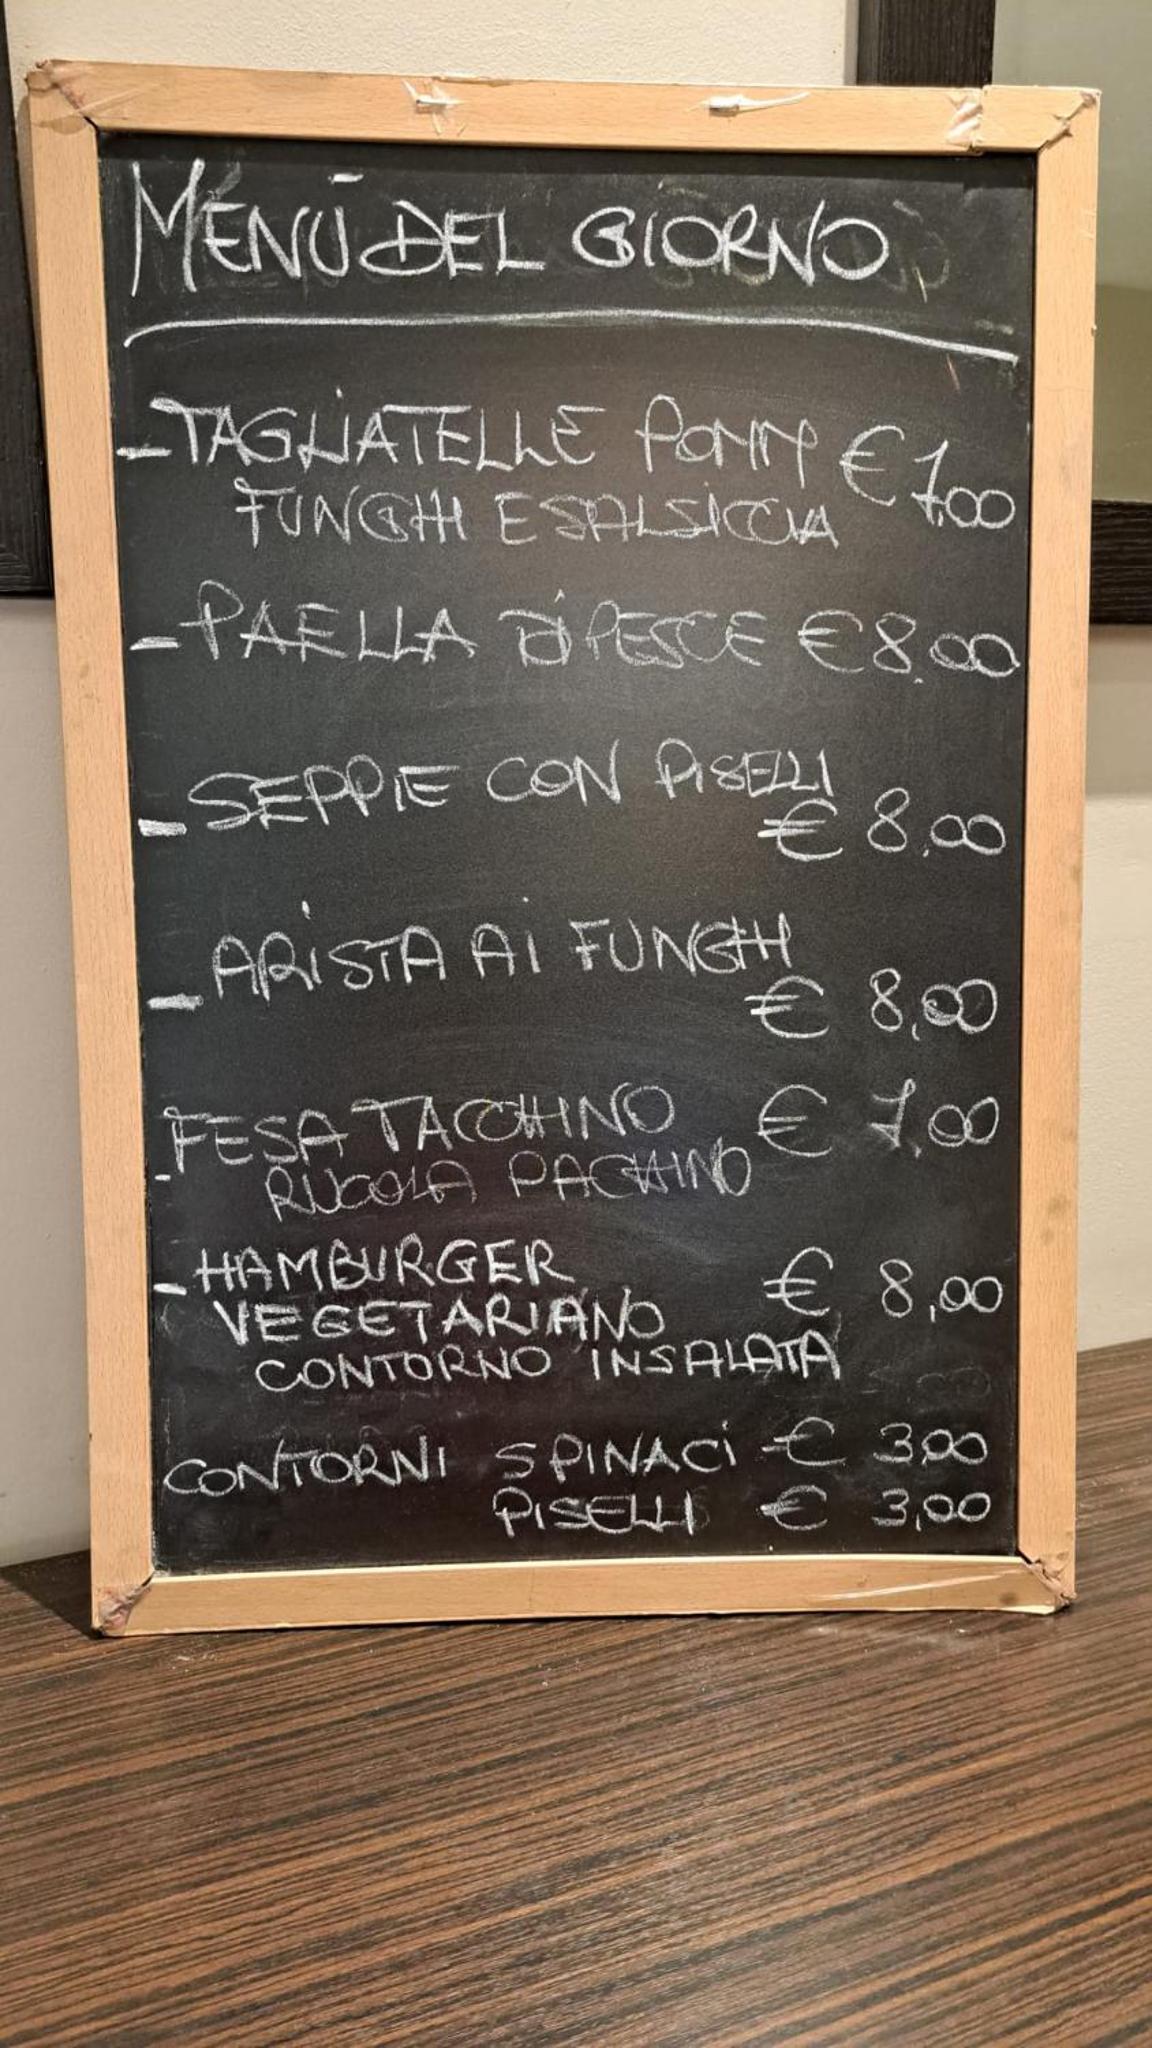 MENÙ DEL GIORNO
- TAGLIATELLE POMM € 7,00
FUNGHI E SALSICCIA
- PAELLA DI PESCE € 8,00
- SEPPIE CON PISELLI
€ 8,00
- ARISTA AI FUNGHI
€ 8,00
- FESA TACCHINO € 7,00
RUCOLA PACHINO
- HAMBURGER € 8,00
VEGETARIANO
CONTORNO INSALATA
CONTORNI SPINACI € 3,00
PISELLI € 3,00